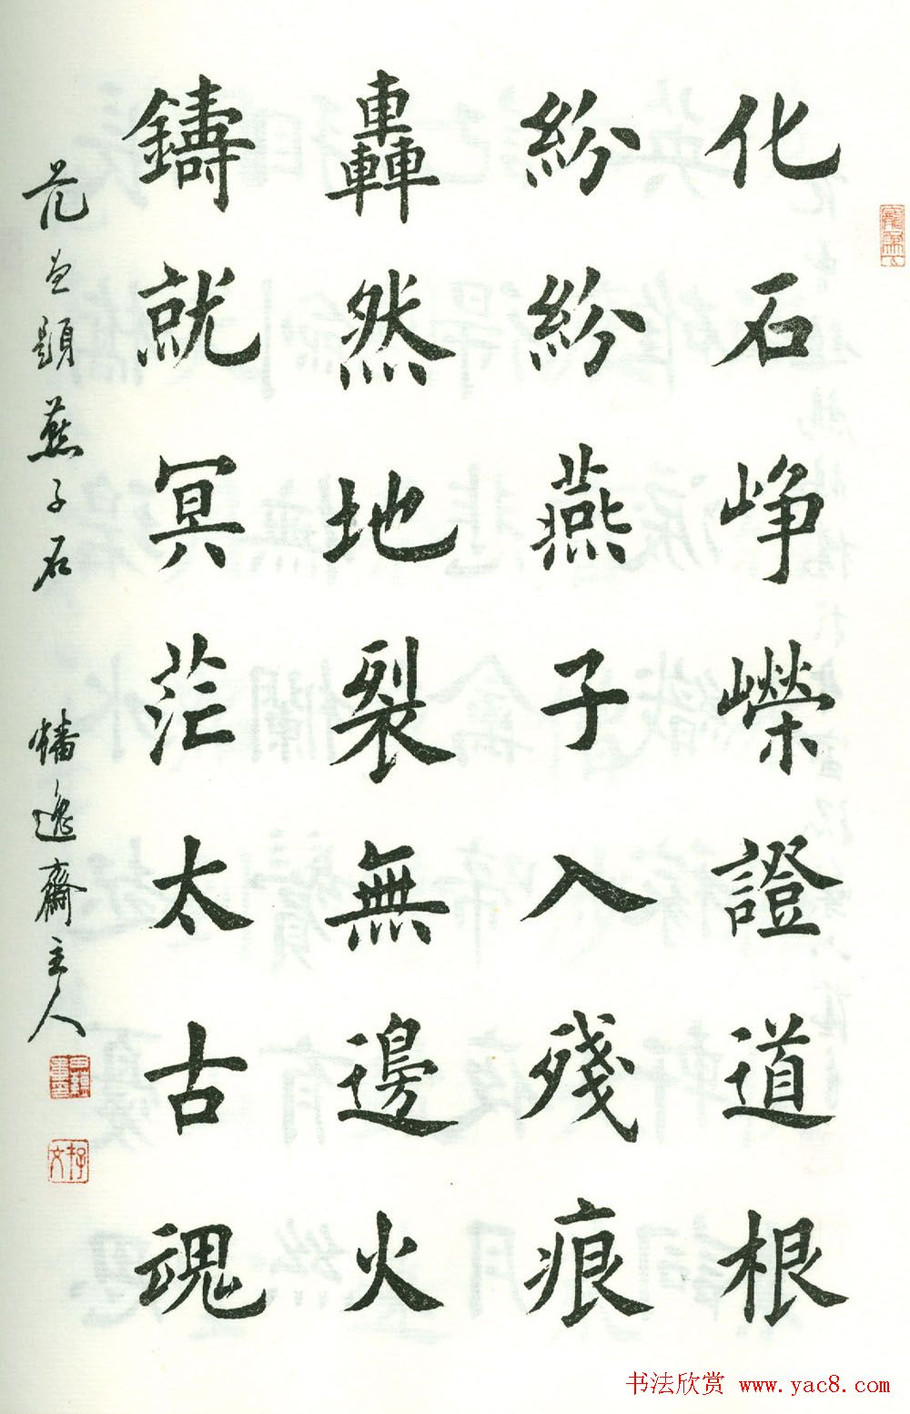 化石崢嶸證道根
紛紛燕子入殘痕
轟然地裂無邊火
鑄就冥茫太古魂
范曾題燕子石 幡逸齋主人
书法欣赏 www.yac8.com